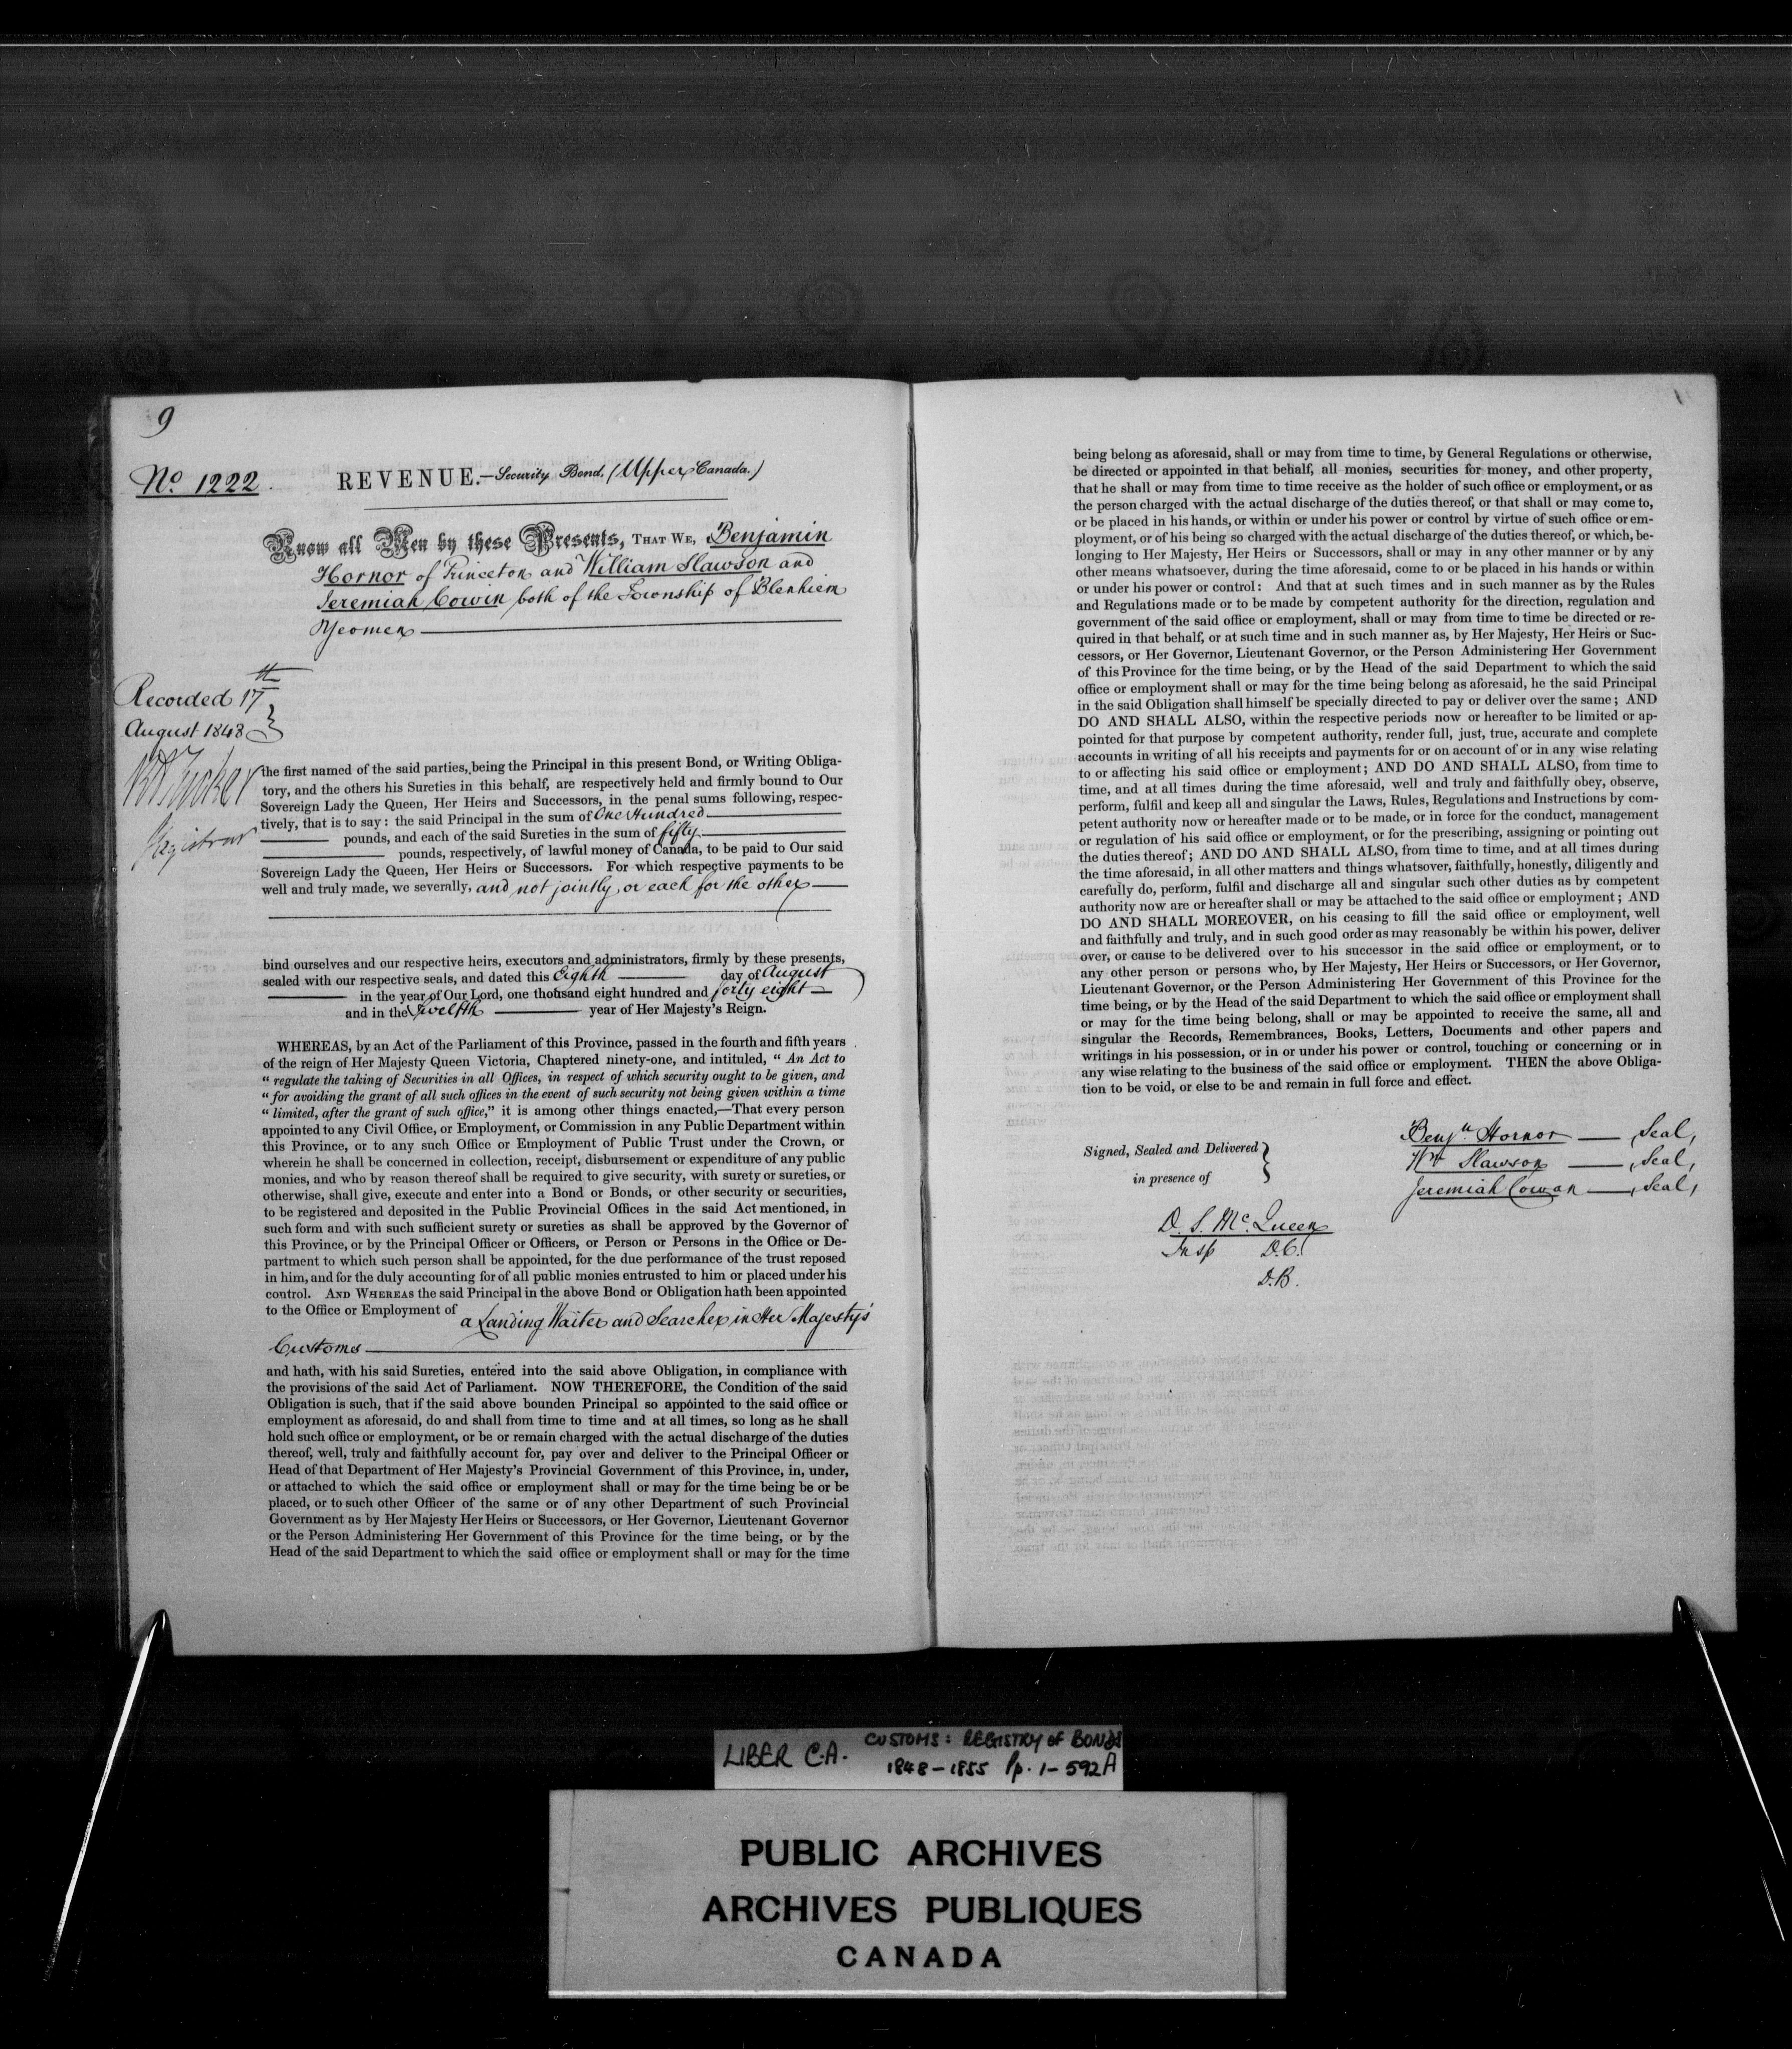 9
No. 1222.
REVENUE.—Security Bond. (Upper Canada.)
Know all Men by these Presents, THAT WE, Benjamin
Hornor of Princeton and William Slawson and
Jeremiah Cowin both of the Township of Blenhiem
Yeomen
Recorded 17th
August 1848 }
Registrar
the first named of the said parties, being the Principal in this present Bond, or Writing Obliga-
tory, and the others his Sureties in this behalf, are respectively held and firmly bound to Our
Sovereign Lady the Queen, Her Heirs and Successors, in the penal sums following, respec-
tively, that is to say: the said Principal in the sum of One Hundred
pounds, and each of the said Sureties in the sum of fifty
pounds, respectively, of lawful money of Canada, to be paid to Our said
Sovereign Lady the Queen, Her Heirs or Successors. For which respective payments to be
well and truly made, we severally, and not jointly, or each for the other
bind ourselves and our respective heirs, executors and administrators, firmly by these presents,
sealed with our respective seals, and dated this Eighth day of August
in the year of Our Lord, one thousand eight hundred and forty eight
and in the Twelfth year of Her Majesty's Reign.
WHEREAS, by an Act of the Parliament of this Province, passed in the fourth and fifth years
of the reign of Her Majesty Queen Victoria, Chaptered ninety-one, and intituled, " An Act to
" regulate the taking of Securities in all Offices, in respect of which security ought to be given, and
" for avoiding the grant of all such offices in the event of such security not being given within a time
" limited, after the grant of such office," it is among other things enacted,—That every person
appointed to any Civil Office, or Employment, or Commission in any Public Department within
this Province, or to any such Office or Employment of Public Trust under the Crown, or
wherein he shall be concerned in collection, receipt, disbursement or expenditure of any public
monies, and who by reason thereof shall be required to give security, with surety or sureties, or
otherwise, shall give, execute and enter into a Bond or Bonds, or other security or securities,
to be registered and deposited in the Public Provincial Offices in the said Act mentioned, in
such form and with such sufficient surety or sureties as shall be approved by the Governor of
this Province, or by the Principal Officer or Officers, or Person or Persons in the Office or De-
partment to which such person shall be appointed, for the due performance of the trust reposed
in him, and for the duly accounting for of all public monies entrusted to him or placed under his
control. AND WHEREAS the said Principal in the above Bond or Obligation hath been appointed
to the Office or Employment of a Landing Waiter and Searcher in Her Majesty's
Customs
and hath, with his said Sureties, entered into the said above Obligation, in compliance with
the provisions of the said Act of Parliament. NOW THEREFORE, the Condition of the said
Obligation is such, that if the said above bounden Principal so appointed to the said office or
employment as aforesaid, do and shall from time to time and at all times, so long as he shall
hold such office or employment, or be or remain charged with the actual discharge of the duties
thereof, well, truly and faithfully account for, pay over and deliver to the Principal Officer or
Head of that Department of Her Majesty's Provincial Government of this Province, in, under,
or attached to which the said office or employment shall or may for the time being be or be
placed, or to such other Officer of the same or of any other Department of such Provincial
Government as by Her Majesty Her Heirs or Successors, or Her Governor, Lieutenant Governor
or the Person Administering Her Government of this Province for the time being, or by the
Head of the said Department to which the said office or employment shall or may for the time
being belong as aforesaid, shall or may from time to time, by General Regulations or otherwise,
be directed or appointed in that behalf, all monies, securities for money, and other property,
that he shall or may from time to time receive as the holder of such office or employment, or as
the person charged with the actual discharge of the duties thereof, or that shall or may come to,
or be placed in his hands, or within or under his power or control by virtue of such office or em-
ployment, or of his being so charged with the actual discharge of the duties thereof, or which, be-
longing to Her Majesty, Her Heirs or Successors, shall or may in any other manner or by any
other means whatsoever, during the time aforesaid, come to or be placed in his hands or within
or under his power or control: And that at such times and in such manner as by the Rules
and Regulations made or to be made by competent authority for the direction, regulation and
government of the said office or employment, shall or may from time to time be directed or re-
quired in that behalf, or at such time and in such manner as, by Her Majesty, Her Heirs or Suc-
cessors, or Her Governor, Lieutenant Governor, or the Person Administering Her Government
of this Province for the time being, or by the Head of the said Department to which the said
office or employment shall or may for the time being belong as aforesaid, he the said Principal
in the said Obligation shall himself be specially directed to pay or deliver over the same; AND
DO AND SHALL ALSO, within the respective periods now or hereafter to be limited or ap-
pointed for that purpose by competent authority, render full, just, true, accurate and complete
accounts in writing of all his receipts and payments for or on account of or in any wise relating
to or affecting his said office or employment; AND DO AND SHALL ALSO, from time to
time, and at all times during the time aforesaid, well and truly and faithfully obey, observe,
perform, fulfil and keep all and singular the Laws, Rules, Regulations and Instructions by com-
petent authority now or hereafter made or to be made, or in force for the conduct, management
or regulation of his said office or employment, or for the prescribing, assigning or pointing out
the duties thereof; AND DO AND SHALL ALSO, from time to time, and at all times during
the time aforesaid, in all other matters and things whatsover, faithfully, honestly, diligently and
carefully do, perform, fulfil and discharge all and singular such other duties as by competent
authority now are or hereafter shall or may be attached to the said office or employment; AND
DO AND SHALL MOREOVER, on his ceasing to fill the said office or employment, well
and faithfully and truly, and in such good order as may reasonably be within his power, deliver
over, or cause to be delivered over to his successor in the said office or employment, or to
any other person or persons who, by Her Majesty, Her Heirs or Successors, or Her Governor,
Lieutenant Governor, or the Person Administering Her Government of this Province for the
time being, or by the Head of the said Department to which the said office or employment shall
or may for the time being belong, shall or may be appointed to receive the same, all and
singular the Records, Remembrances, Books, Letters, Documents and other papers and
writings in his possession, or in or under his power or control, touching or concerning or in
any wise relating to the business of the said office or employment. THEN the above Obliga-
tion to be void, or else to be and remain in full force and effect.
Signed, Sealed and Delivered }
in presence of
Benjn. Hornor — Seal,
Wm Slawson — Seal,
Jeremiah Cowan — Seal,
D. S. Mc.Queen
Insp D.C.
D.B.
LIBER C.A. CUSTOMS: REGISTRY of BONDS
1848-1855 pp. 1-592A
PUBLIC ARCHIVES
ARCHIVES PUBLIQUES
CANADA